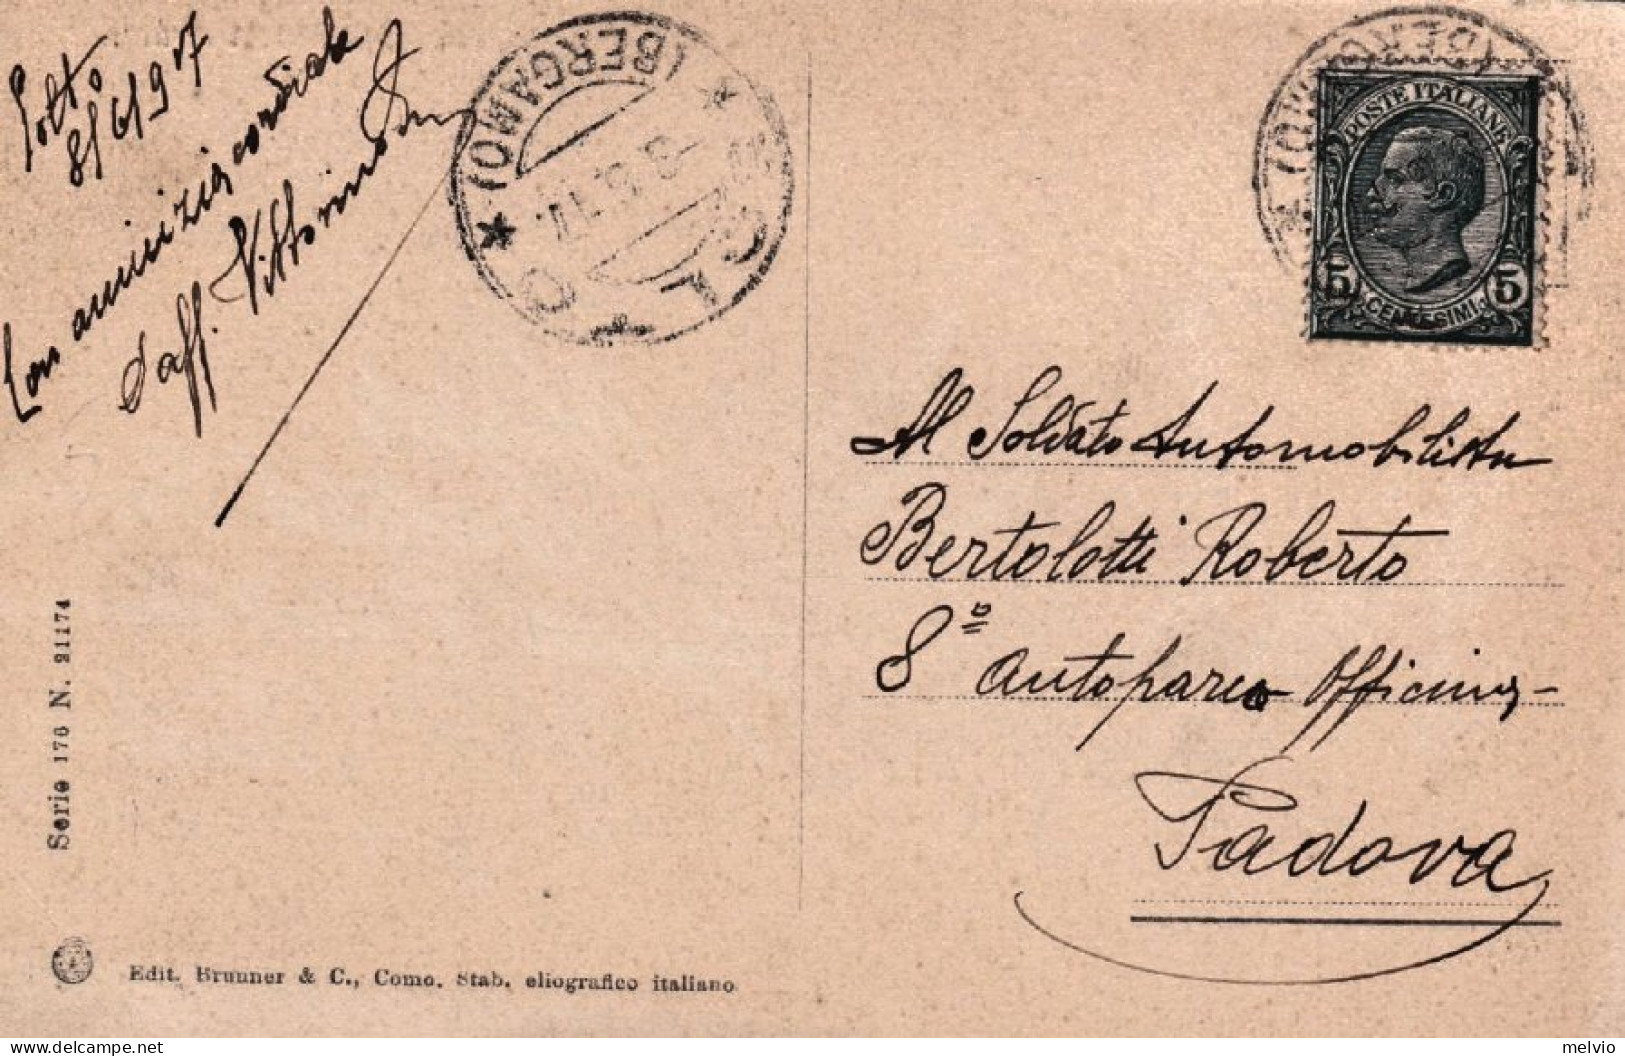 8/6/917
Con amicizia cordiale
Vittorino
(BERGAMO)
POSTE ITALIANE
5 5
CENTESIMI
Al Soldato Automobilista
Bertolotti Roberto
8º autoparco Officina
Padova
Serie 176 N. 21174
Edit. Brunner & C., Como. Stab. eliografico italiano
melvio